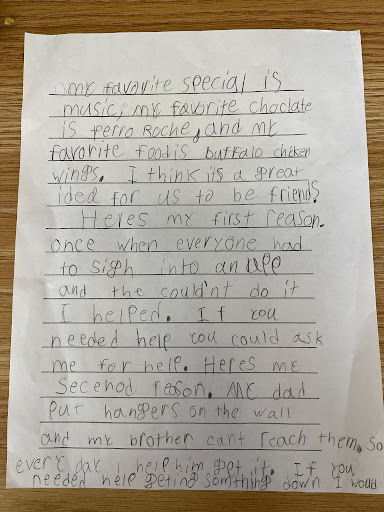 my favorite special is
music, my favorite choclate
is ferro Roche, and my
favorite food is buffalo chicken
wings. I think it's a great
idea for us to be friends.
Heres my first reason.
once when everyone had
to sigh into an app
and the could'nt do it
I helped. If you
needed help you could ask
me for help. Heres my
Secenod reason. My dad
Put hangers on the wall
and my brother cant reach them. So
every day I help him get it. If you
needed help geting somthing down I would